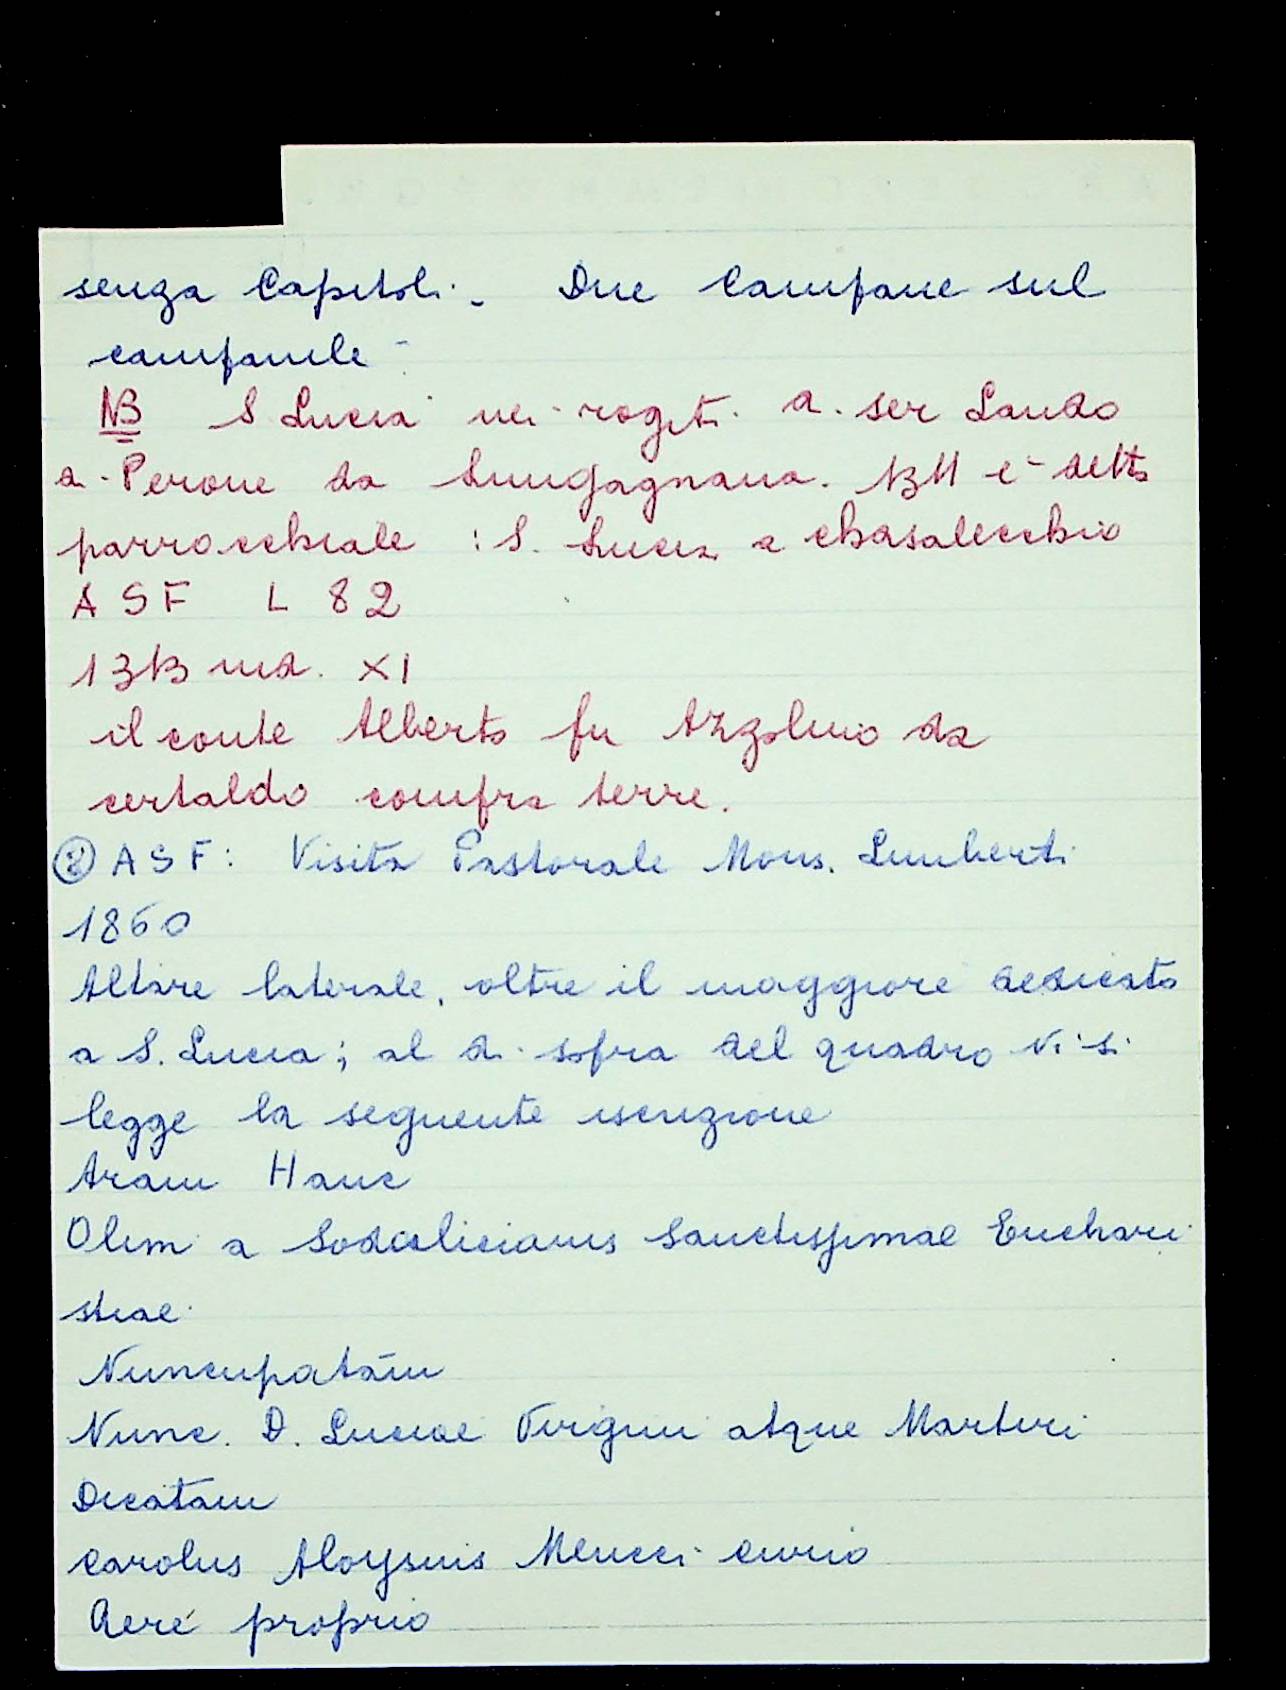 senza Capitoli. Due Campane sul
campanile
NB S Lucia nei rogiti di ser Lando
di Perone da Lungagnana. 1311 è detto
parrocchiale : S. Lucia a Chasalecchio
ASF L 82
1313 ind. XI
il conte Alberto fu Azzolino da
certaldo compra terre.
ASF: Visita Pastorale Mons. Limberti
1860
Altare laterale, oltre il maggiore dedicato
a S. Lucia; al di sopra del quadro vi si
legge la seguente iscrizione
Aram Hanc
Olim a Sodaliciariis Sanctissimae Euchari
stiae
Nuncupatam
Nunc. D. Luciae Virgini atque Martiri
Dicatam
Carolus Aloysius Meucci curio
Aere proprio